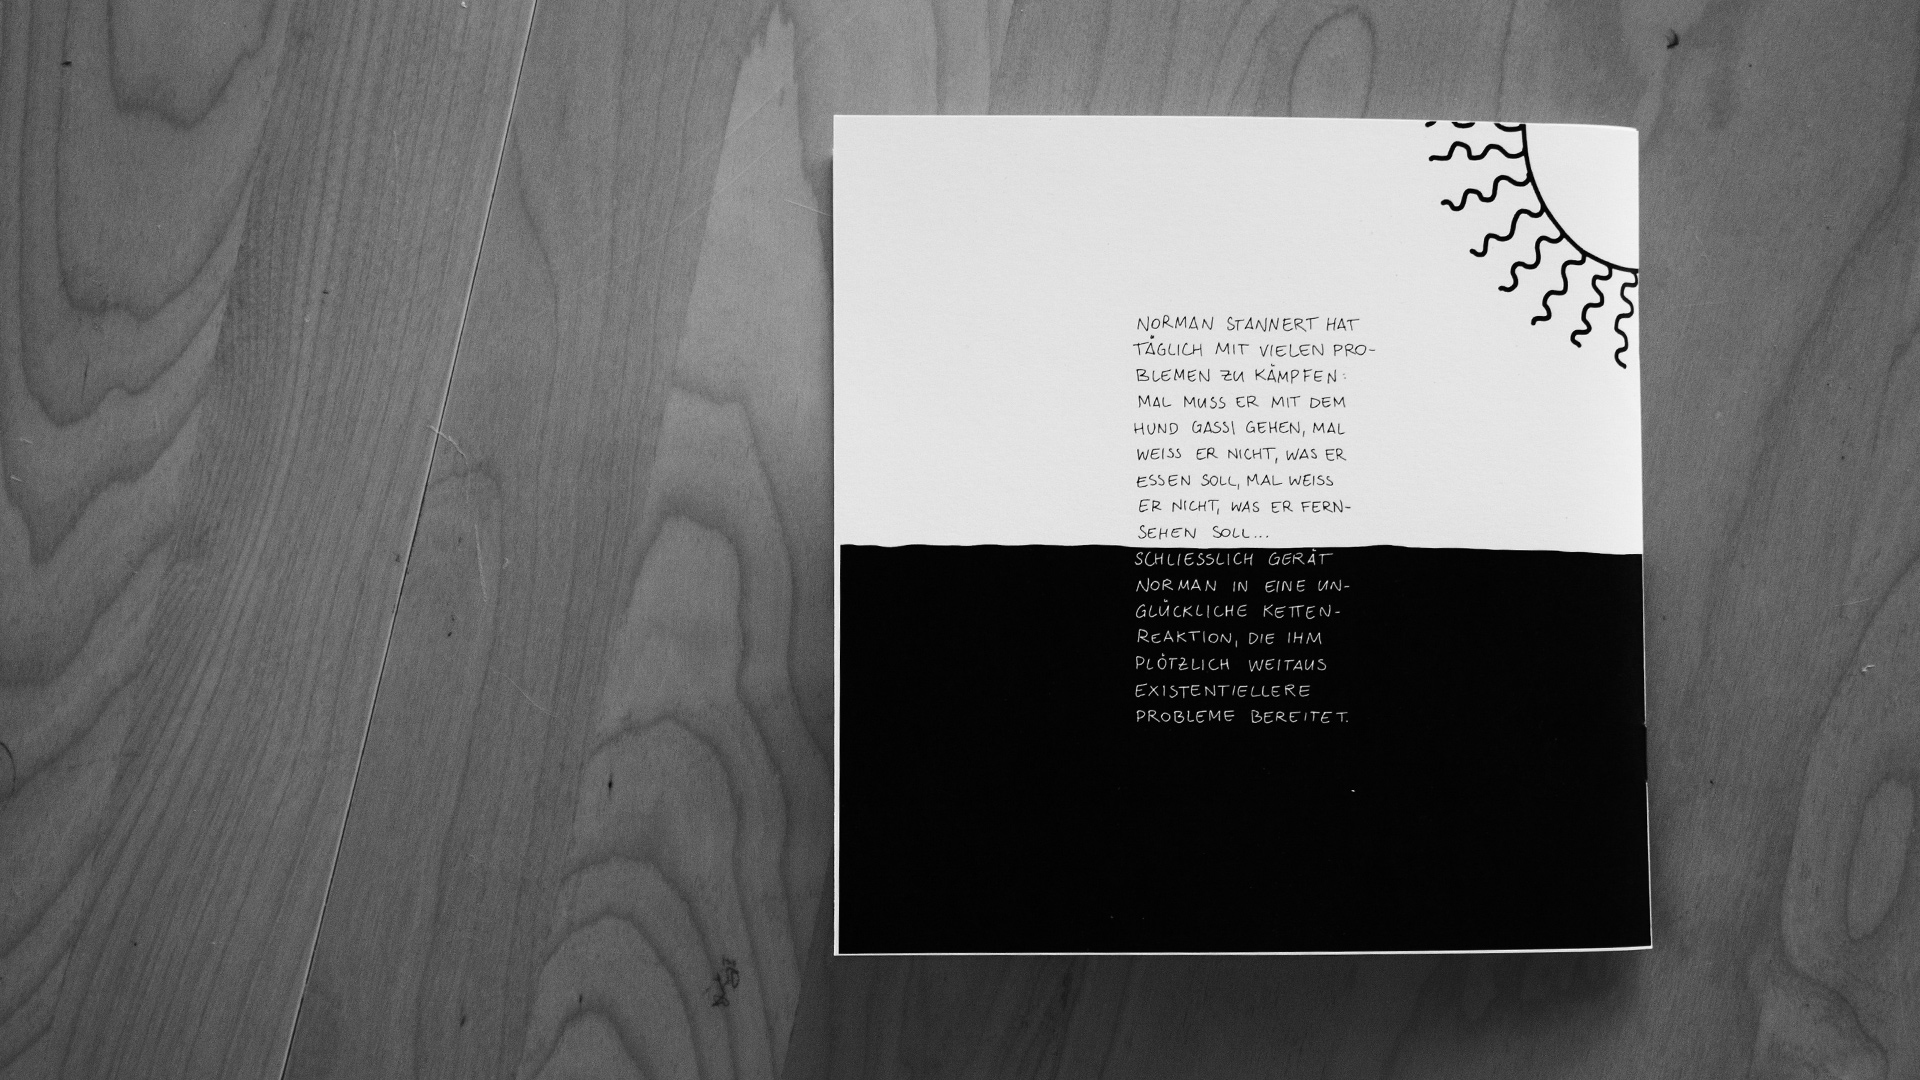 NORMAN STANNERT HAT
TÄGLICH MIT VIELEN PRO-
BLEMEN ZU KÄMPFEN:
MAL MUSS ER MIT DEM
HUND GASSI GEHEN, MAL
WEISS ER NICHT, WAS ER
ESSEN SOLL, MAL WEISS
ER NICHT, WAS ER FERN-
SEHEN SOLL...
SCHLIESSLICH GERÄT
NORMAN IN EINE UN-
GLÜCKLICHE KETTEN-
REAKTION, DIE IHM
PLÖTZLICH WEITAUS
EXISTENTIELLERE
PROBLEME BEREITET.